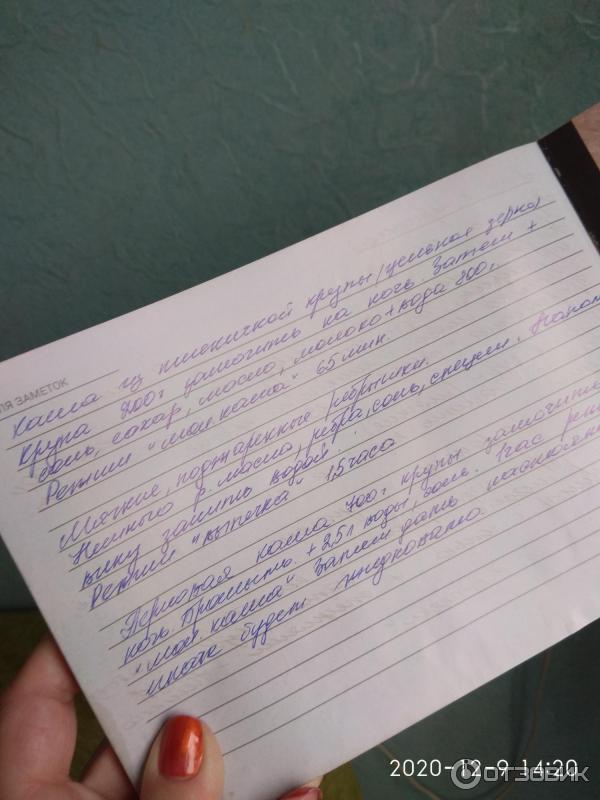 ЛЯ ЗАМЕТОК
Каша из пшеничной крупы/цельное зерно
крупа 200г замочить на ночь Затем +
соль, сахар, масло, молоко+вода 800г.
Режим "мои каши" 65 мин.
Мягкие, поджаренные ребрышки.
Немного р. масла, ребра, соль, специи.
залить водой.
Режим "выпечка" 1,5 часа
Перловая каша 700г крупы замочить
ночь. Промыть. + 2,5л воды, соль. 1час
"мои каши" Затем дать
иначе будет жидковато.
2020-12-9 14:20
ОТЗОВИК